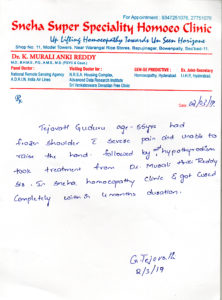 For Appointment : 9347251076, 27751076
Sneha Super Speciality Homoeo Clinic
Up Lifting Homoeopathy Towards Un Seen Horizons
Shop No. 11, Model Towers, Near Warangal Rice Stores, Bapujinagar, Bowenpally, Sec'bad-11.
Dr. K. MURALI ANKI REDDY
Panel Doctor :
National Remote Sensing Agency
A.D.R.I.N. India Air Lines
Visiting Doctor for :
N.R.S.A. Housing Complex,
Advanced Data Research Institute
Sri Venkateswara Devasthan Free Clinic
Homoeopathy, Hyderabad
Ex. Joint Secretary
Homoeopathy, U.H.F, Hyderabad
Tejovati Guduru age - 55yrs had
frozen shoulder & severe pain and unable to
raise the hand. followed by hypothyroidism
took treatment from Dr. Murali Anki Reddy
sir. In sneha, homoeopathy clinic & got cured
completely within 4 months duration.
G. Tejovathi
8/3/19